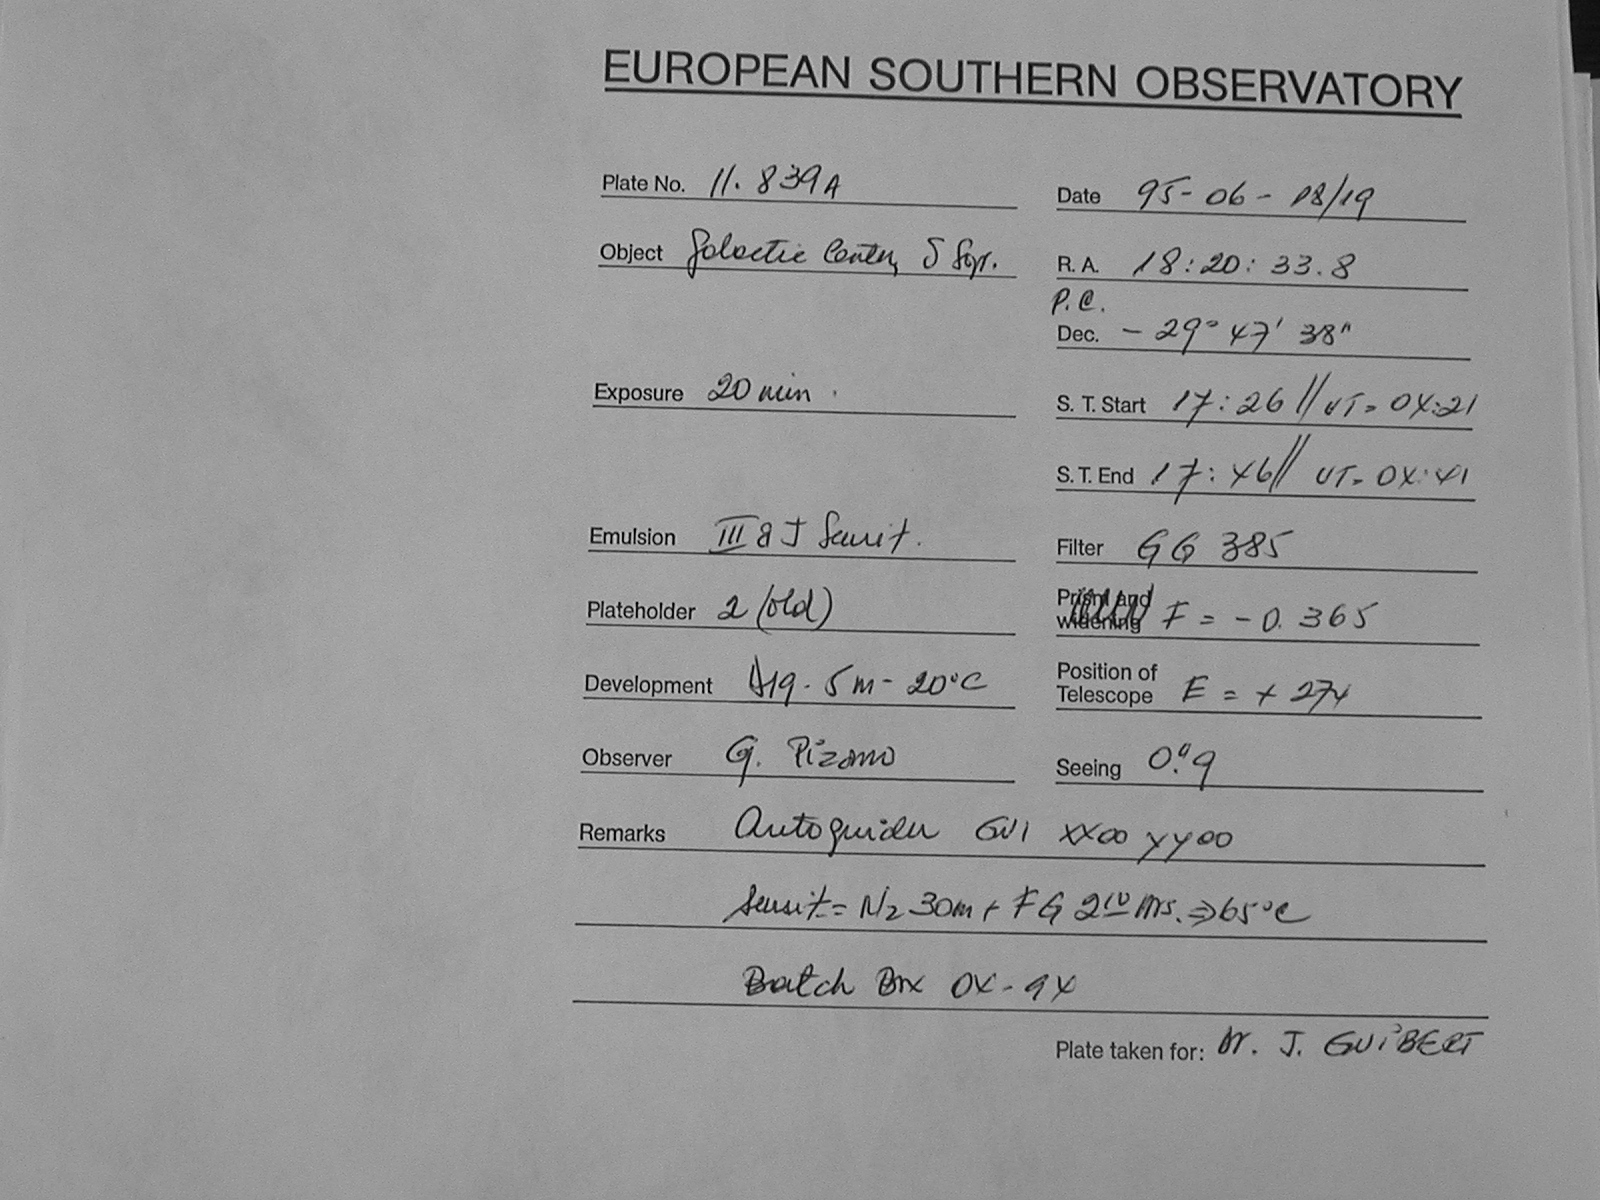 EUROPEAN SOUTHERN OBSERVATORY
Plate No. 11.839A
Date 95-06-18/19
Object Galactic Center, δ Sgr.
R.A. 18:20:33.8
P.C.
Dec. -29° 47' 38"
Exposure 20 min.
S. T. Start 17:26 // UT= 04:21
S.T. End 17:46 // UT= 04:41
Emulsion III a J Sensit.
Filter GG 385
Plateholder 2 (old)
Prism and
widening F = -0.365
Development D19. 5m- 20°C
Position of
Telescope E = + 274
Observer G. Pizarro
Seeing 0".9
Remarks Autoguider GUI XX00 YY00
Sensit= N2 30m + FG 2 hrs. ⇒65°C
Batch Box 04-94
Plate taken for: Dr. J. GUIBERT